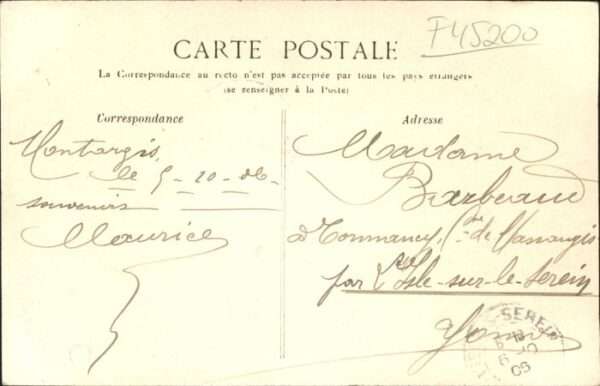 F45200
CARTE POSTALE
La Correspondance au recto n'est pas acceptée par tous les pays étrangers
(se renseigner à la Poste)
Correspondance
Adresse
Montargis,
le 5-10-06
souvenirs
Maurice
Madame
Barbeaud
à Tormancy, Cne de Massangis
par l'Isle-sur-le-Serein
Yonne
SEREIN